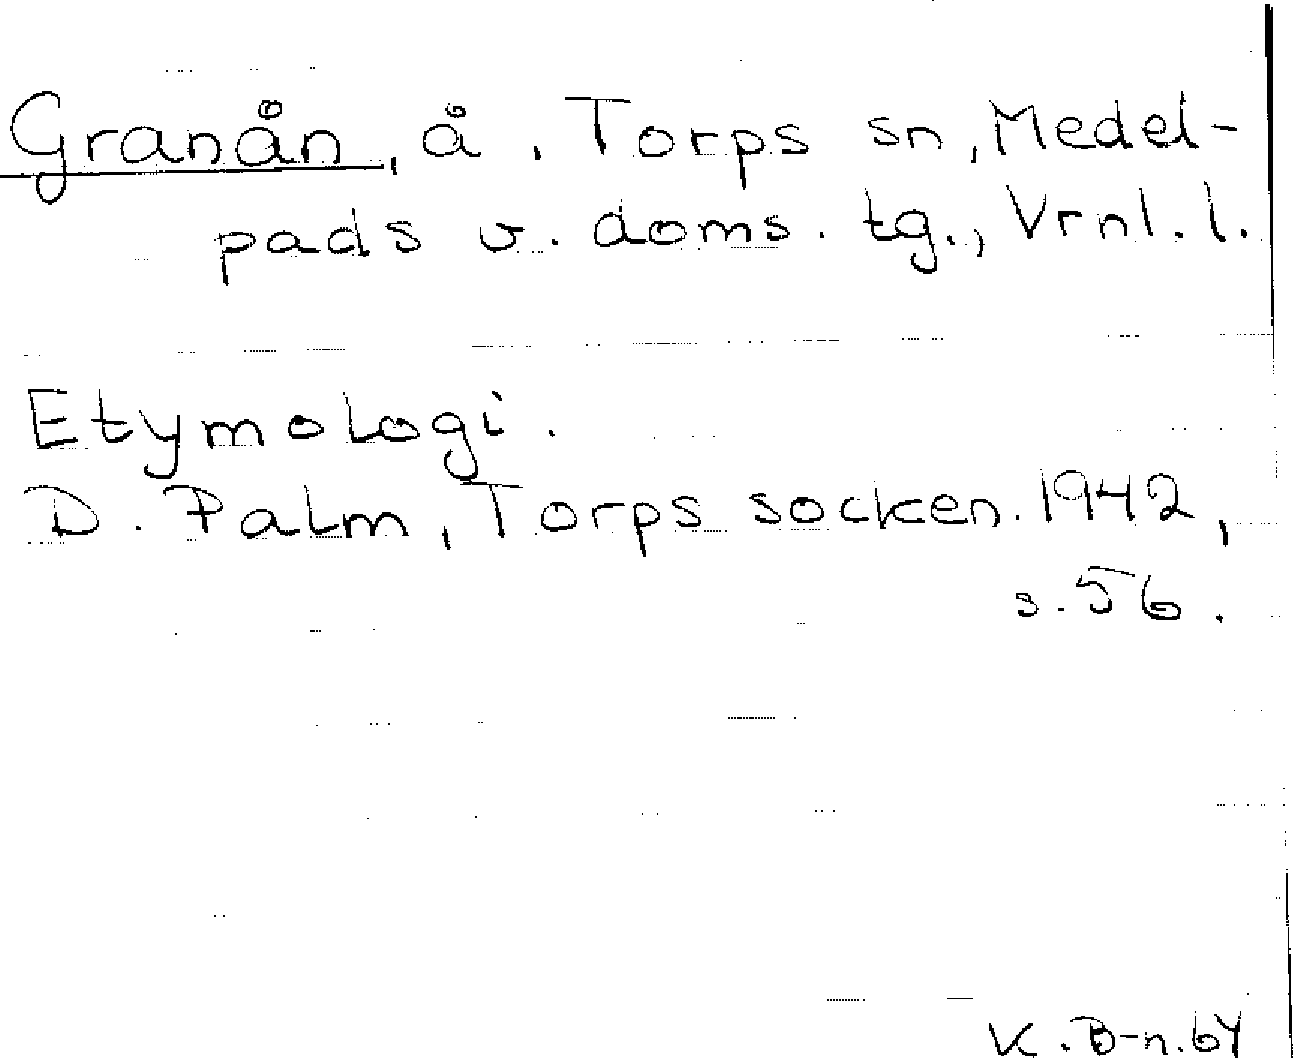 Granån, å, Torps sn, Medel-
pads v. doms. tg., Vrnl. l.
Etymologi.
D. Palm, Torps socken. 1942,
s. 56.
K. B-n. 64